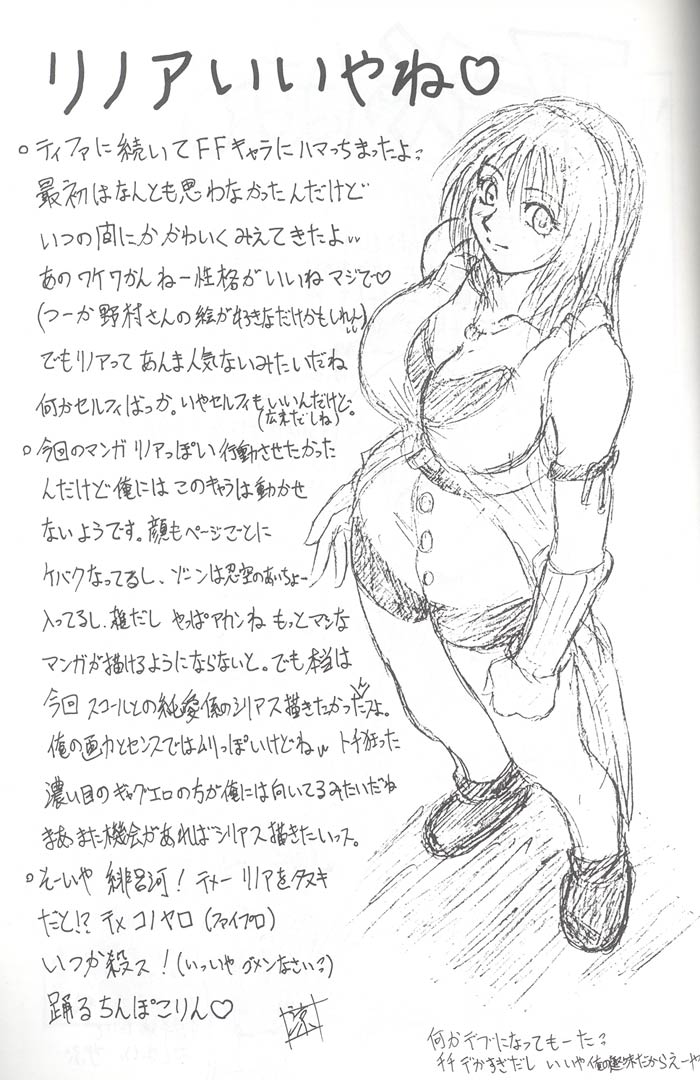 リノアいいやね♡
○ ティファに続いてFFキャラにハマっちまったよ〜
最初はなんとも思わなかったんだけど
いつの間にかかわいくみえてきたよ
あのワケワかんねー性格がいいねマジで♡
(つーか野村さんの絵が好きなだけかもしれん)
でもリノアってあんま人気ないみたいだね
何かセルフィばっか。いやセルフィもいいんだけど。
(広末だしね)
○ 今回のマンガ リノアっぽい行動させたかった
んだけど俺にはこのキャラは動かせ
ないようです。顔もページごとに
ケバくなってるし、ゾーンは忍空のあいちょー
入ってるし、雑だし やっぱアカンね もっとマシな
マンガが描けるようにならないと。でも本当は
今回 スコールとの純愛係のシリアス描きたかったスよ。
俺の画力とセンスではムリっぽいけどね トチ狂った
濃い目のギャグエロの方が俺には向いてるみたいだね
まあまた機会があればシリアス描きたいっス。
○ えーいや 緋呂河! テメー リノアをタヌキ
だと!? テメコノヤロ (ファイプロ)
いつか殺ス! (いっいや ゴメンなさい〜)
踊るちんぽこりん♡
何かデブになってもーた〜
チチデカすぎだし いいや 俺の趣味だからえーや